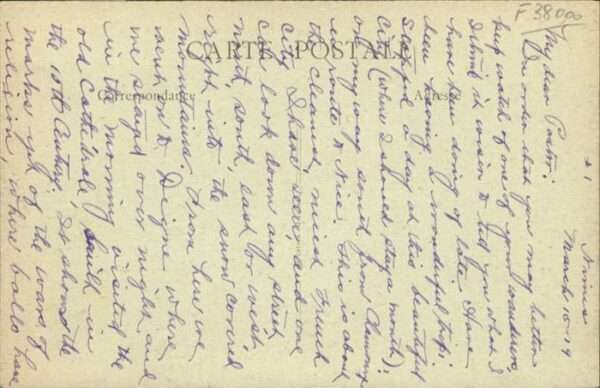 F 38000
CARTE POSTALE
Correspondance
Adresse
# 1
Nimes
March 10-19
My dear Pastor:
In order that you may better
keep watch of one of your wanderers
I think it wise to tell you what I
have been doing of late. Have
been having a wonderful trip.
Stopped a day at this beautiful
city (where I should stay a month)
on my way south from
enroute to Nice. This is about
the cleanest, nicest French
city I have seen, and one
can look down any street
north, south, east or west
right into the snow covered
mountains. From here we
went to Digne where
we stayed over night and
in the morning visited the
old Cathedrale, built in
the 10th Century. It shows the
marks yet of the wars of
religion, where balls have